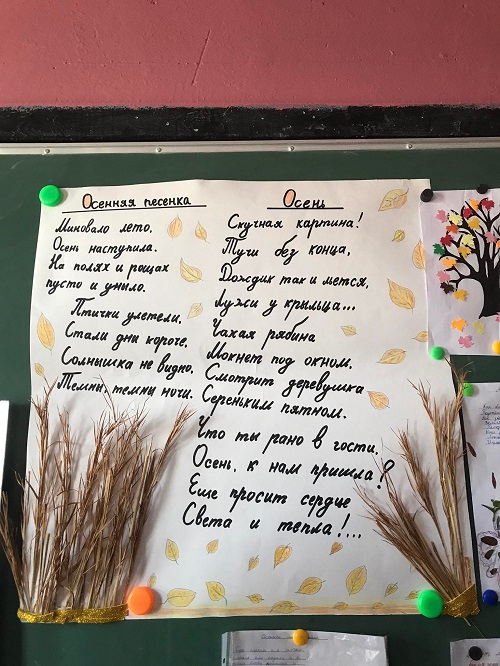 Осенняя песенка
Миновало лето,
Осень наступила.
На полях и рощах
пусто и уныло.
Птички улетели,
Стали дни короче,
Солнышка не видно,
Темны, темны ночи.
Осень
Скучная картина!
Тучи без конца,
Дождик так и льется,
Лужи у крыльца...
Чахая рябина
Мокнет под окном,
Смотрит деревушка
Сереньким пятном.
Что ты рано в гости,
Осень, к нам пришла?
Еще просит сердце
Света и тепла!...